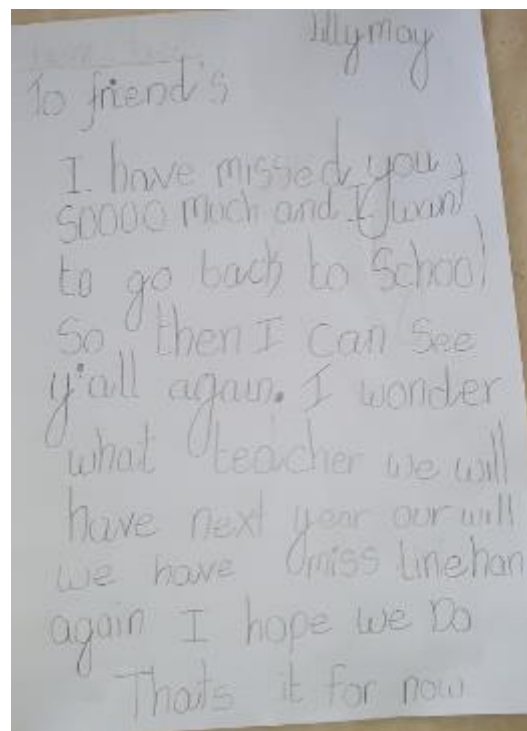 Lillymay
To friend's
I have missed you
soooo much and I want
to go back to School
So then I can See
y'all again. I wonder
what teacher we will
have next year our will
we have miss linehan
again I hope we Do
Thats it for now